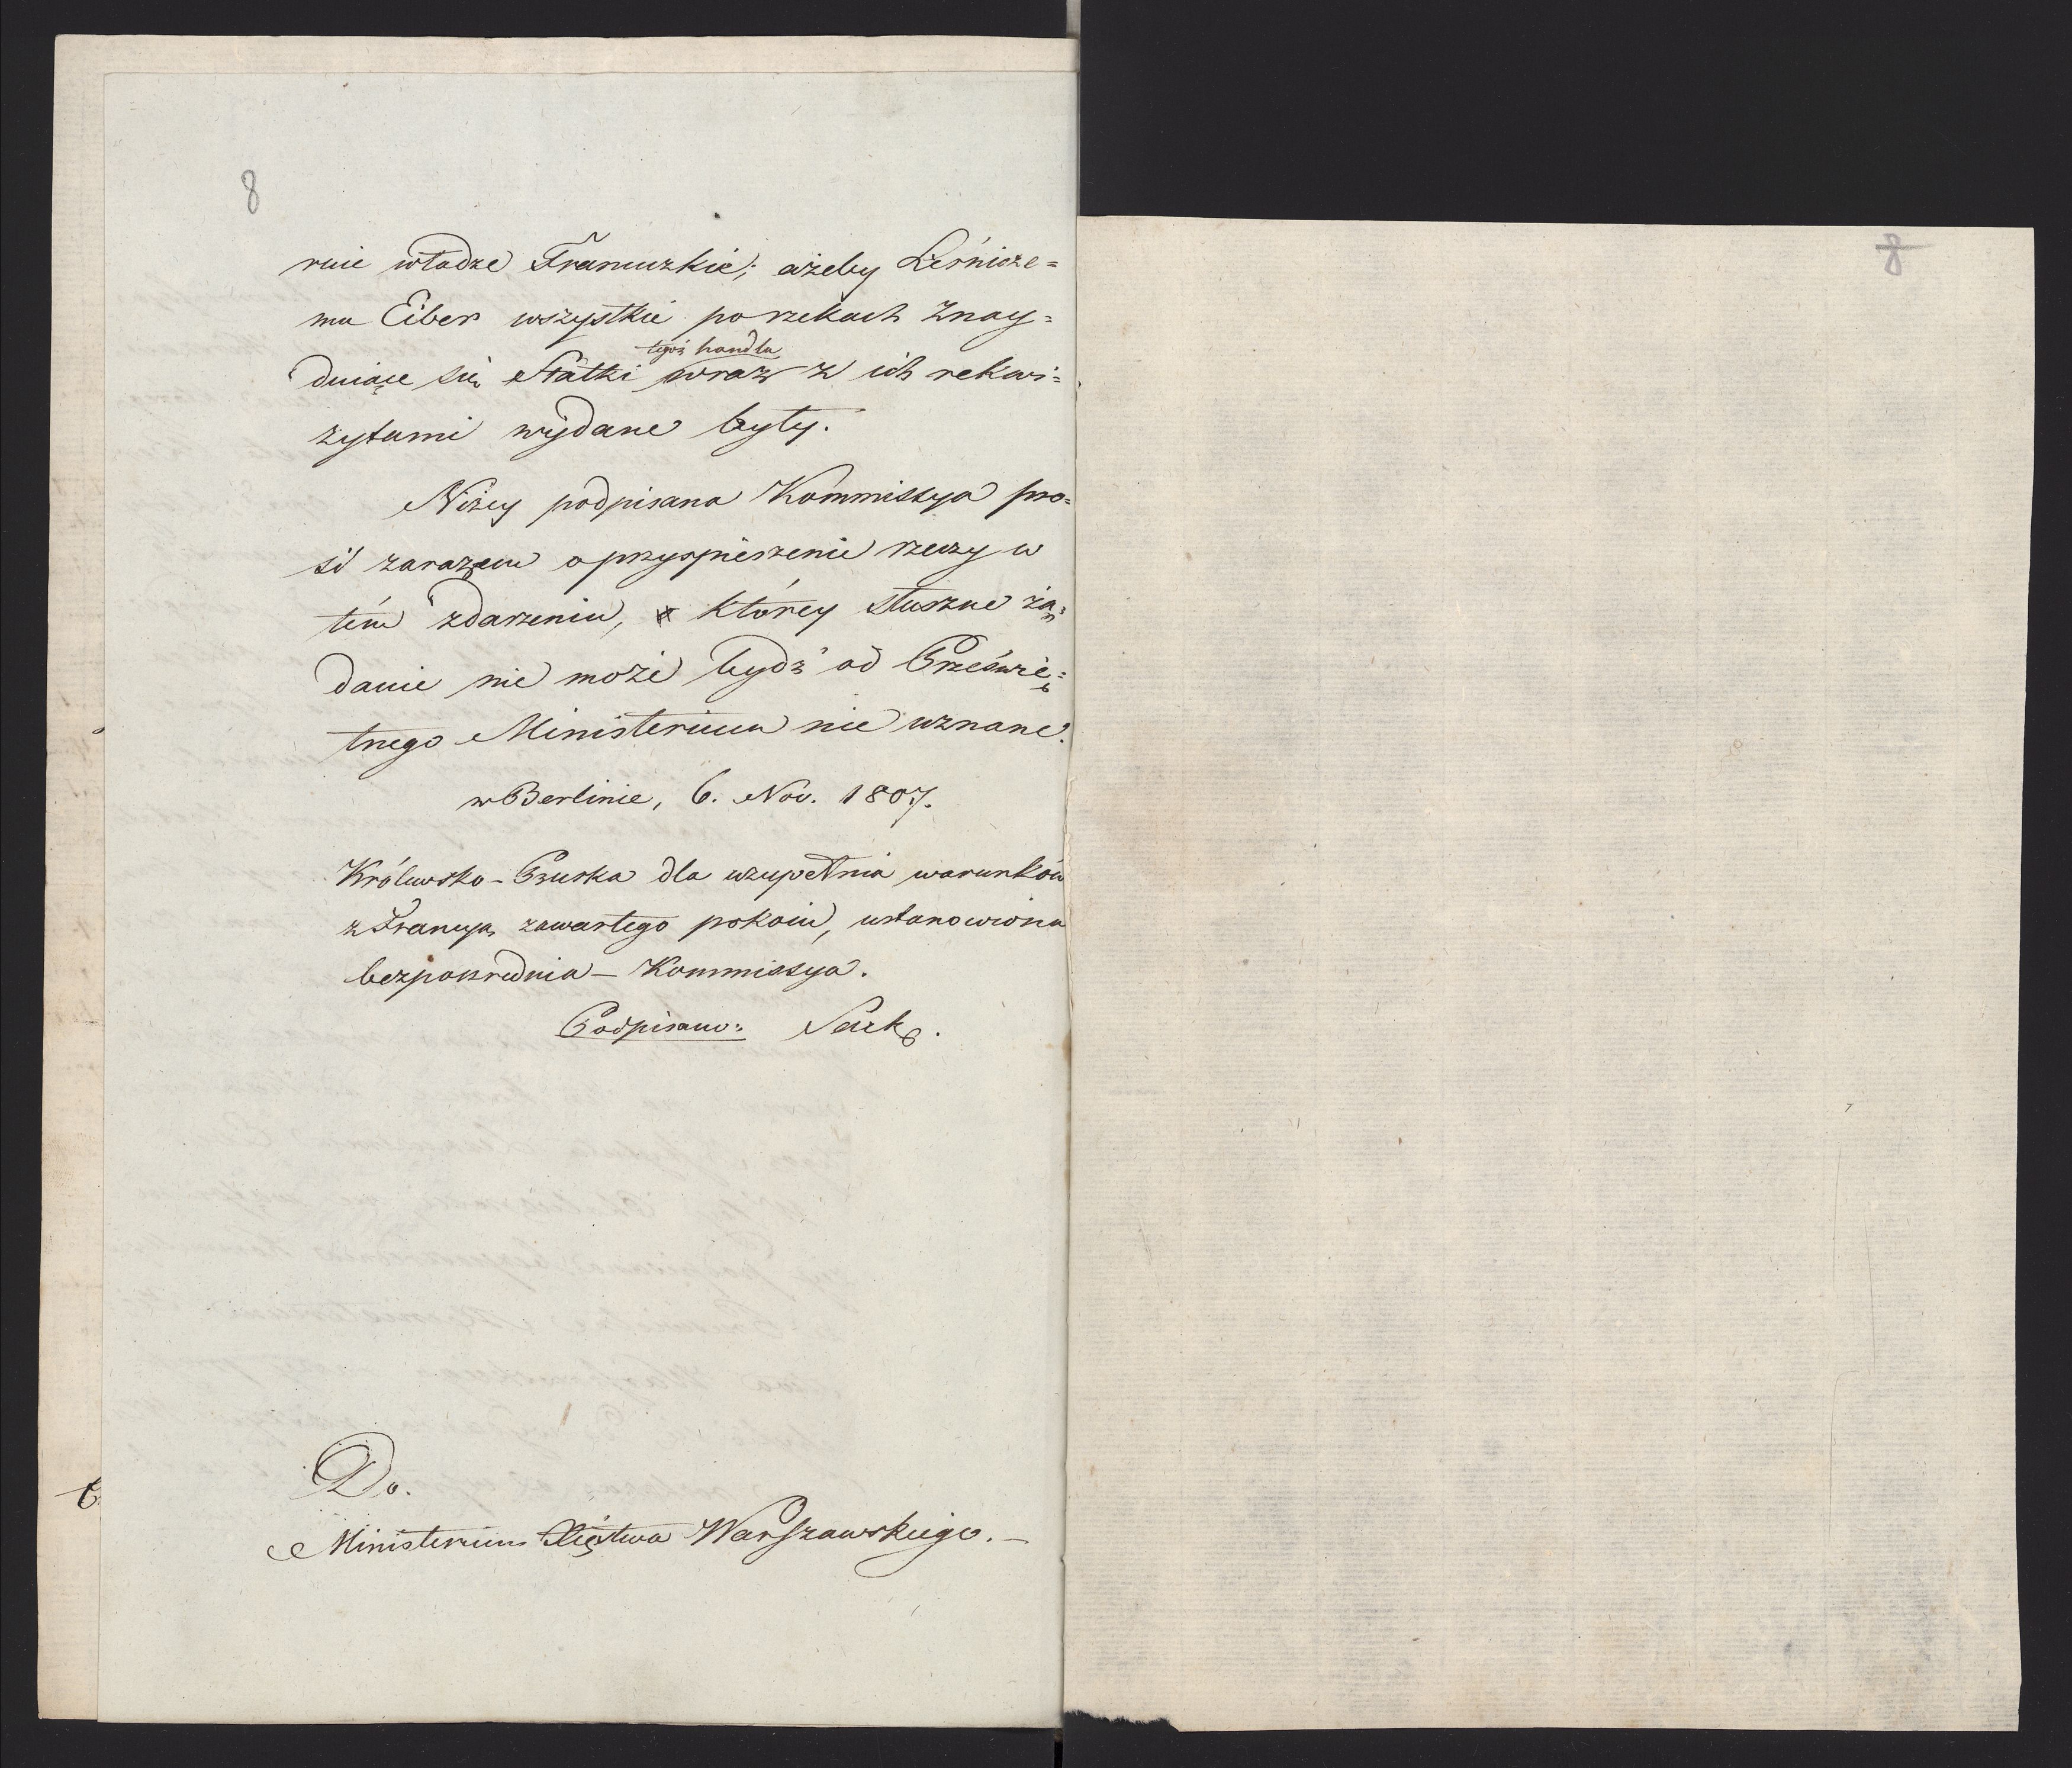 8
rnie władze Francuzkie; ażeby Leśnicze=
mu Eiber wszystkie po rzekach znay=
tegoż handlu
duiące się Statki wraz z ich rekwi=
zytami wydane były.
Niżey podpisana Kommissya pro=
si zarazem o przyspieszenie rzeczy w
tém zdarzeniu, którey słuszne żą=
danie nie może bydź od Prześwię=
tnego Ministerium nie uznane.
w Berlinie, 6. Nov. 1807.
Królewsko-Pruska dla uzupełnia warunków
z Francyą zawartego pokoiu, ustanowiona
bezpośrednia – Kommissya.
Podpisano: Sack.
Do.
Ministerium Xięstwa Warszawskiego. –
8